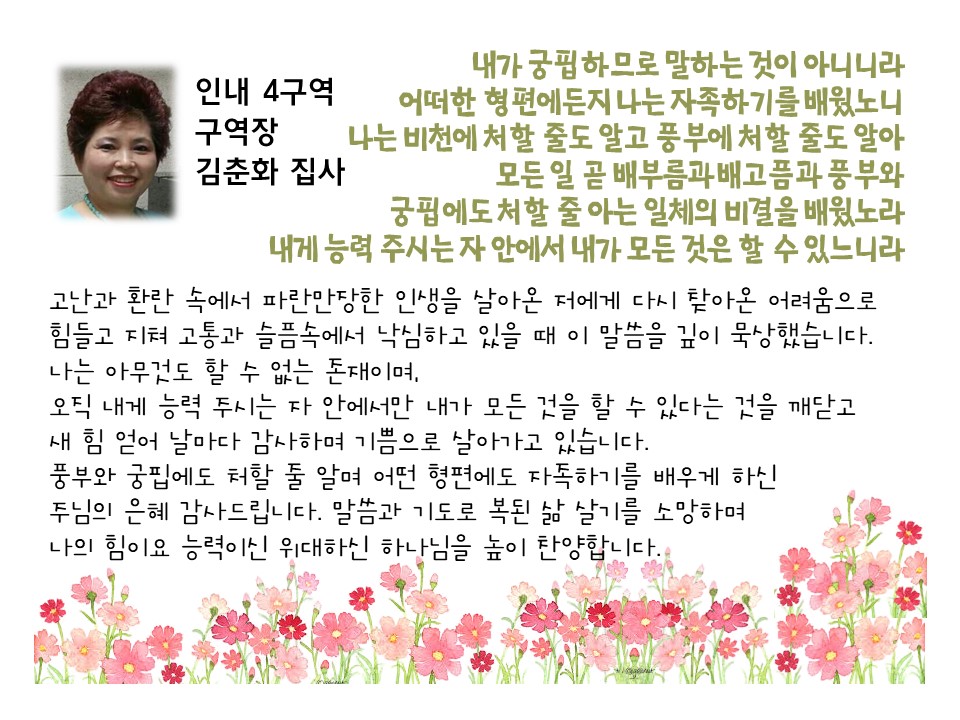 인내 4구역
구역장
김춘화 집사
내가 궁핍하므로 말하는 것이 아니니라
어떠한 형편에든지 나는 자족하기를 배웠노니
나는 비천에 처할 줄도 알고 풍부에 처할 줄도 알아
모든 일 곧 배부름과 배고픔과 풍부와
궁핍에도 처할 줄 아는 일체의 비결을 배웠노라
내게 능력 주시는 자 안에서 내가 모든 것은 할 수 있느니라
고난과 환란 속에서 파란만장한 인생을 살아온 저에게 다시 찾아온 어려움으로
힘들고 지쳐 고통과 슬픔속에서 낙심하고 있을 때 이 말씀을 깊이 묵상했습니다.
나는 아무것도 할 수 없는 존재이며,
오직 내게 능력 주시는 자 안에서만 내가 모든 것을 할 수 있다는 것을 깨닫고
새 힘 얻어 날마다 감사하며 기쁨으로 살아가고 있습니다.
풍부와 궁핍에도 처할 줄 알며 어떤 형편에도 자족하기를 배우게 하신
주님의 은혜 감사드립니다. 말씀과 기도로 복된 삶 살기를 소망하며
나의 힘이요 능력이신 위대하신 하나님을 높이 찬양합니다.